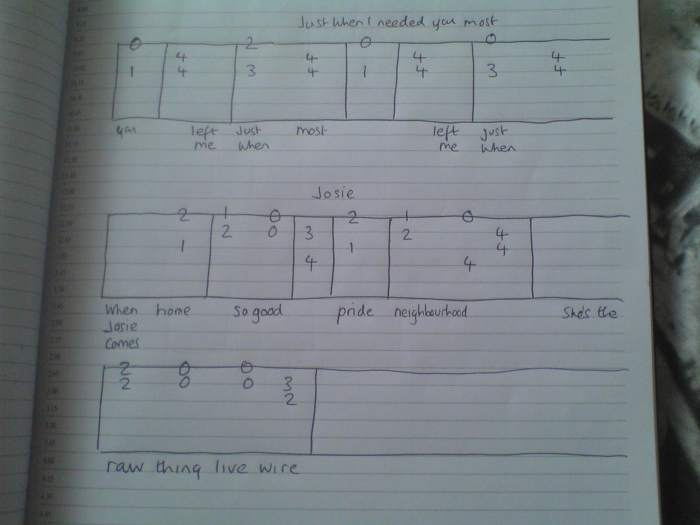 Just When I needed you most
0 2 0 0
4 4 4 4
1 4 3 4 1 4 3 4
you left just most left just
me when me when
Josie
2 1 0 2 1 0
2 0 3 2 4
1 1 4
4 4
When home so good pride neighbourhood She's the
Josie
comes
2 0 0
2 0 0 3
2
raw thing live wire